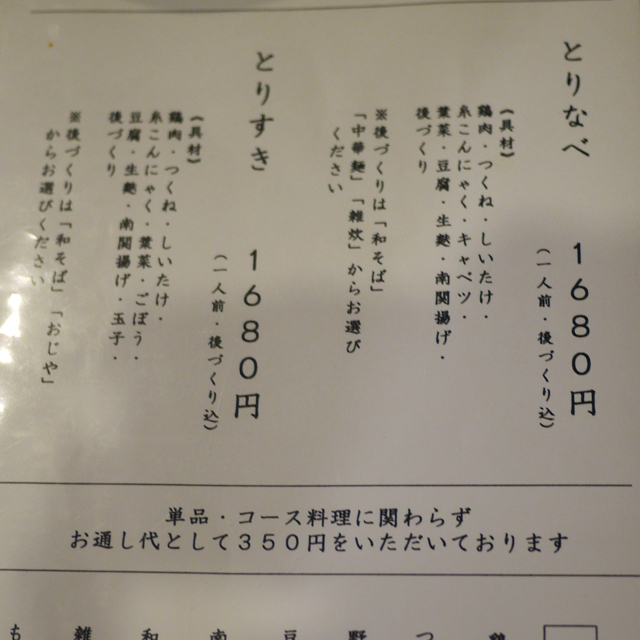 とりなべ
1680円
(一人前・後づくり込)
(具材)
鶏肉・つくね・しいたけ・
糸こんにゃく・キャベツ・
葉菜・豆腐・生麩・南関揚げ・
後づくり
※後づくりは「和そば」
「中華麺」「雑炊」からお選び
ください
とりすき
1680円
(一人前・後づくり込)
(具材)
鶏肉・つくね・しいたけ・
糸こんにゃく・葉菜・ごぼう・
豆腐・生麩・南関揚げ・玉子・
後づくり
※後づくりは「和そば」「おじや」
からお選びください
単品・コース料理に関わらず
お通し代として350円をいただいております
鶏
つ
野
豆
南
和
雑
も